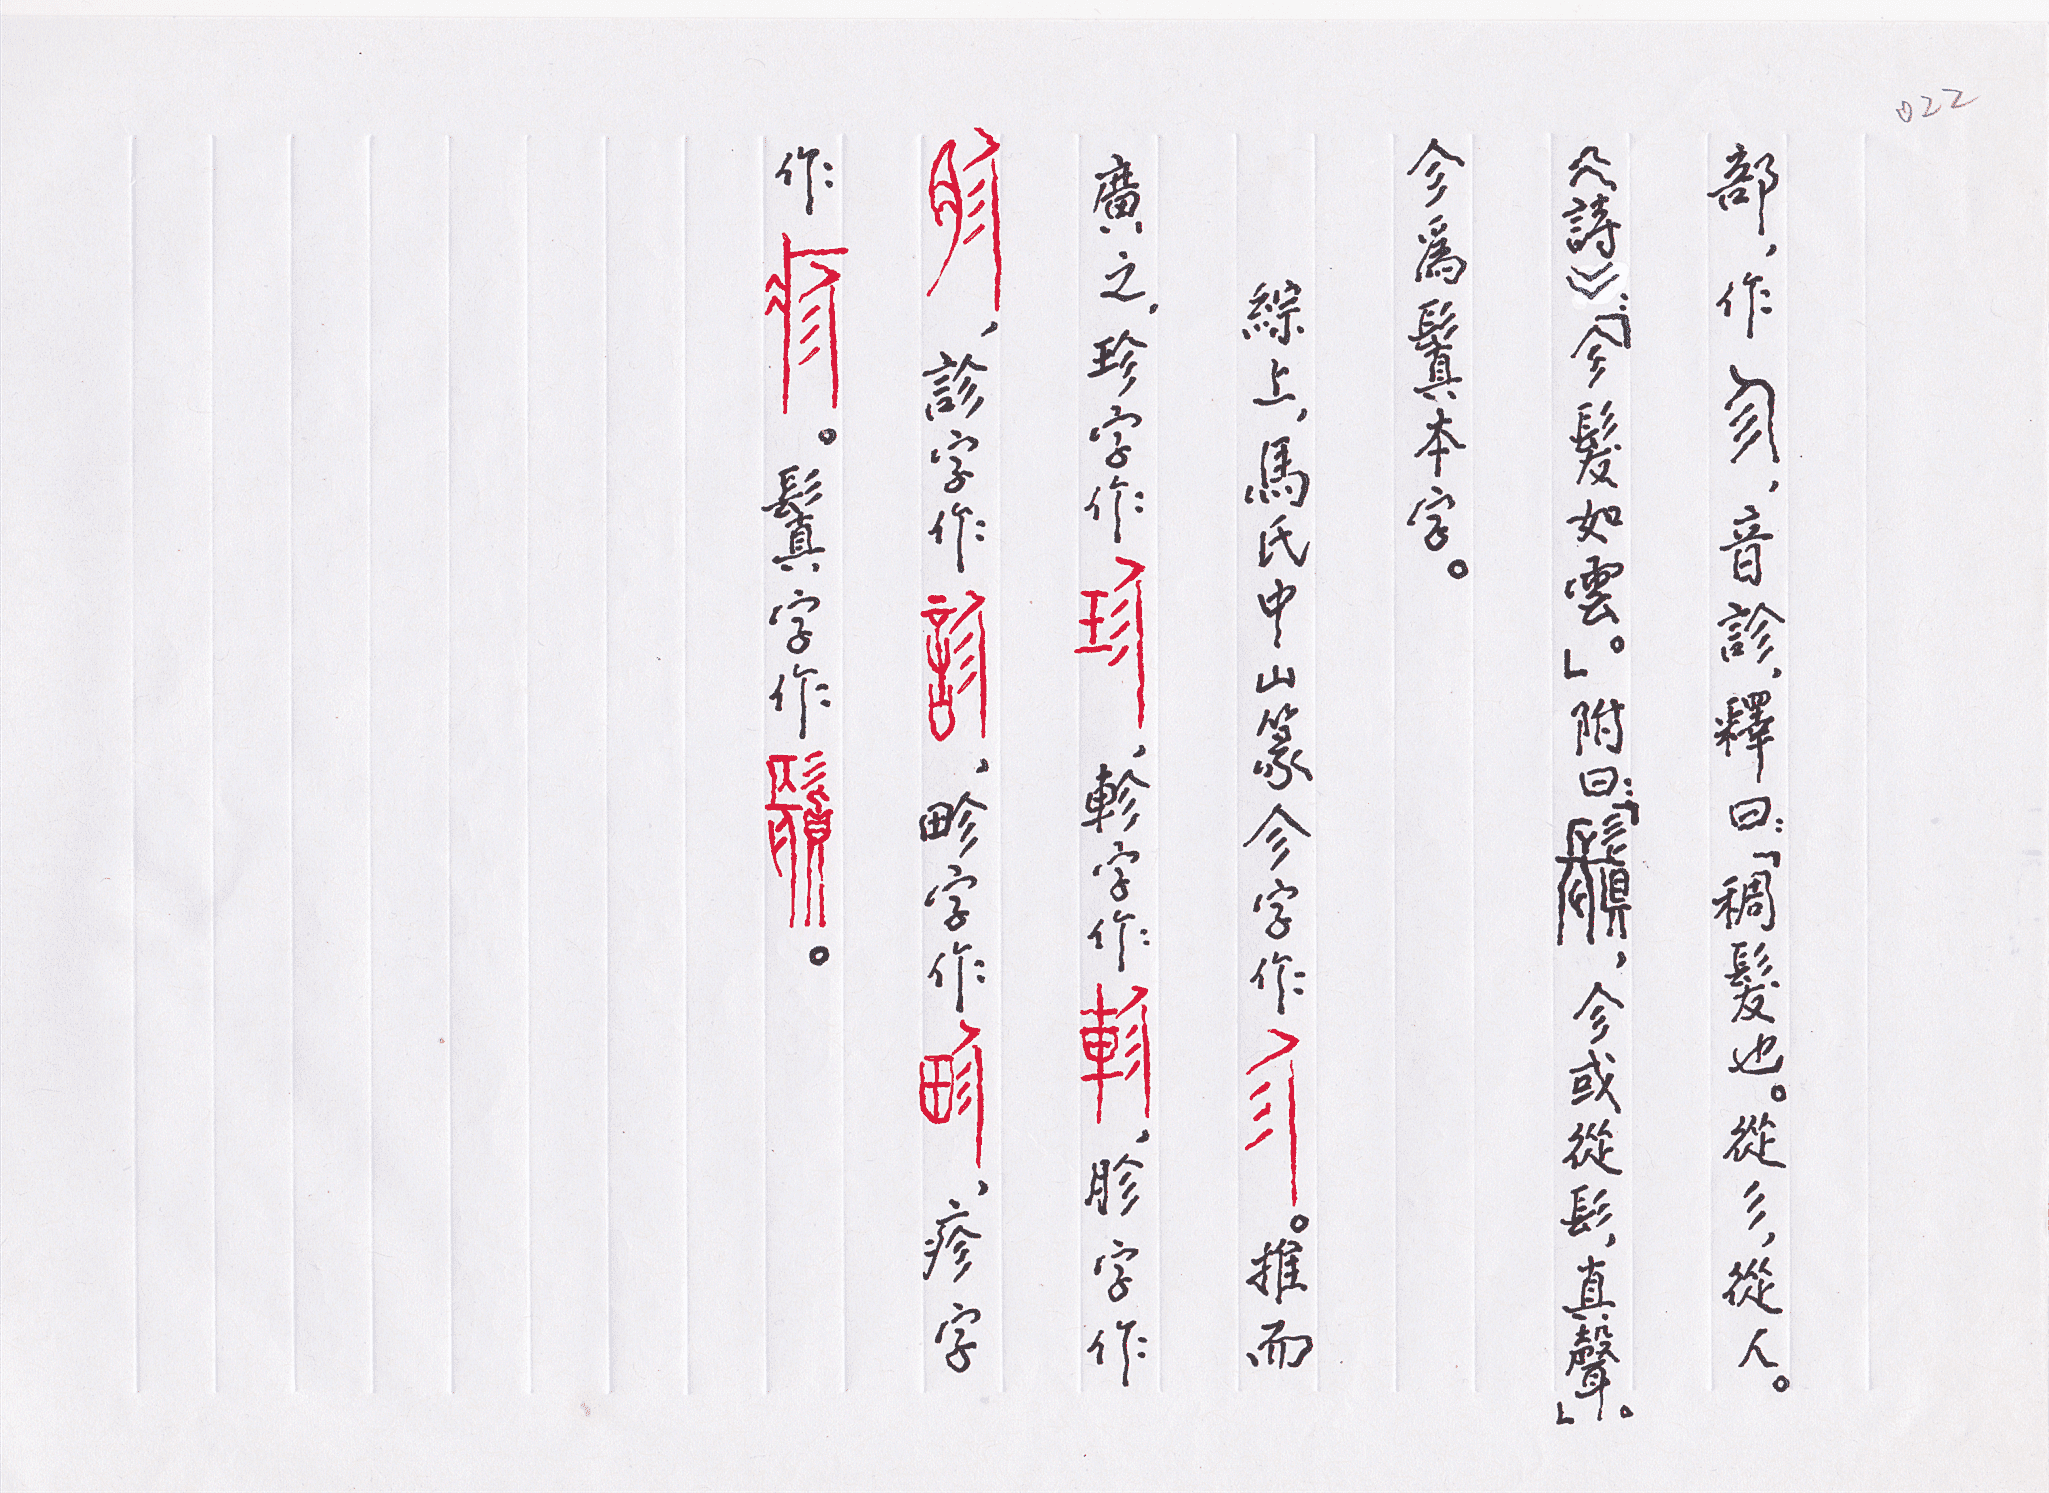 022
部，作㐱，音診，釋曰：「稠髮也。從彡，從人。
《詩》：「㐱髮如雲。」附曰：「鬒，㐱或從髟，真聲。」。
㐱爲鬒本字。
綜上，馬氏中山篆㐱字作㐱。推而
廣之，珍字作珍，軫字作軫，胗字作
胗，診字作診，畛字作畛，疹字
作疹。鬒字作鬒。